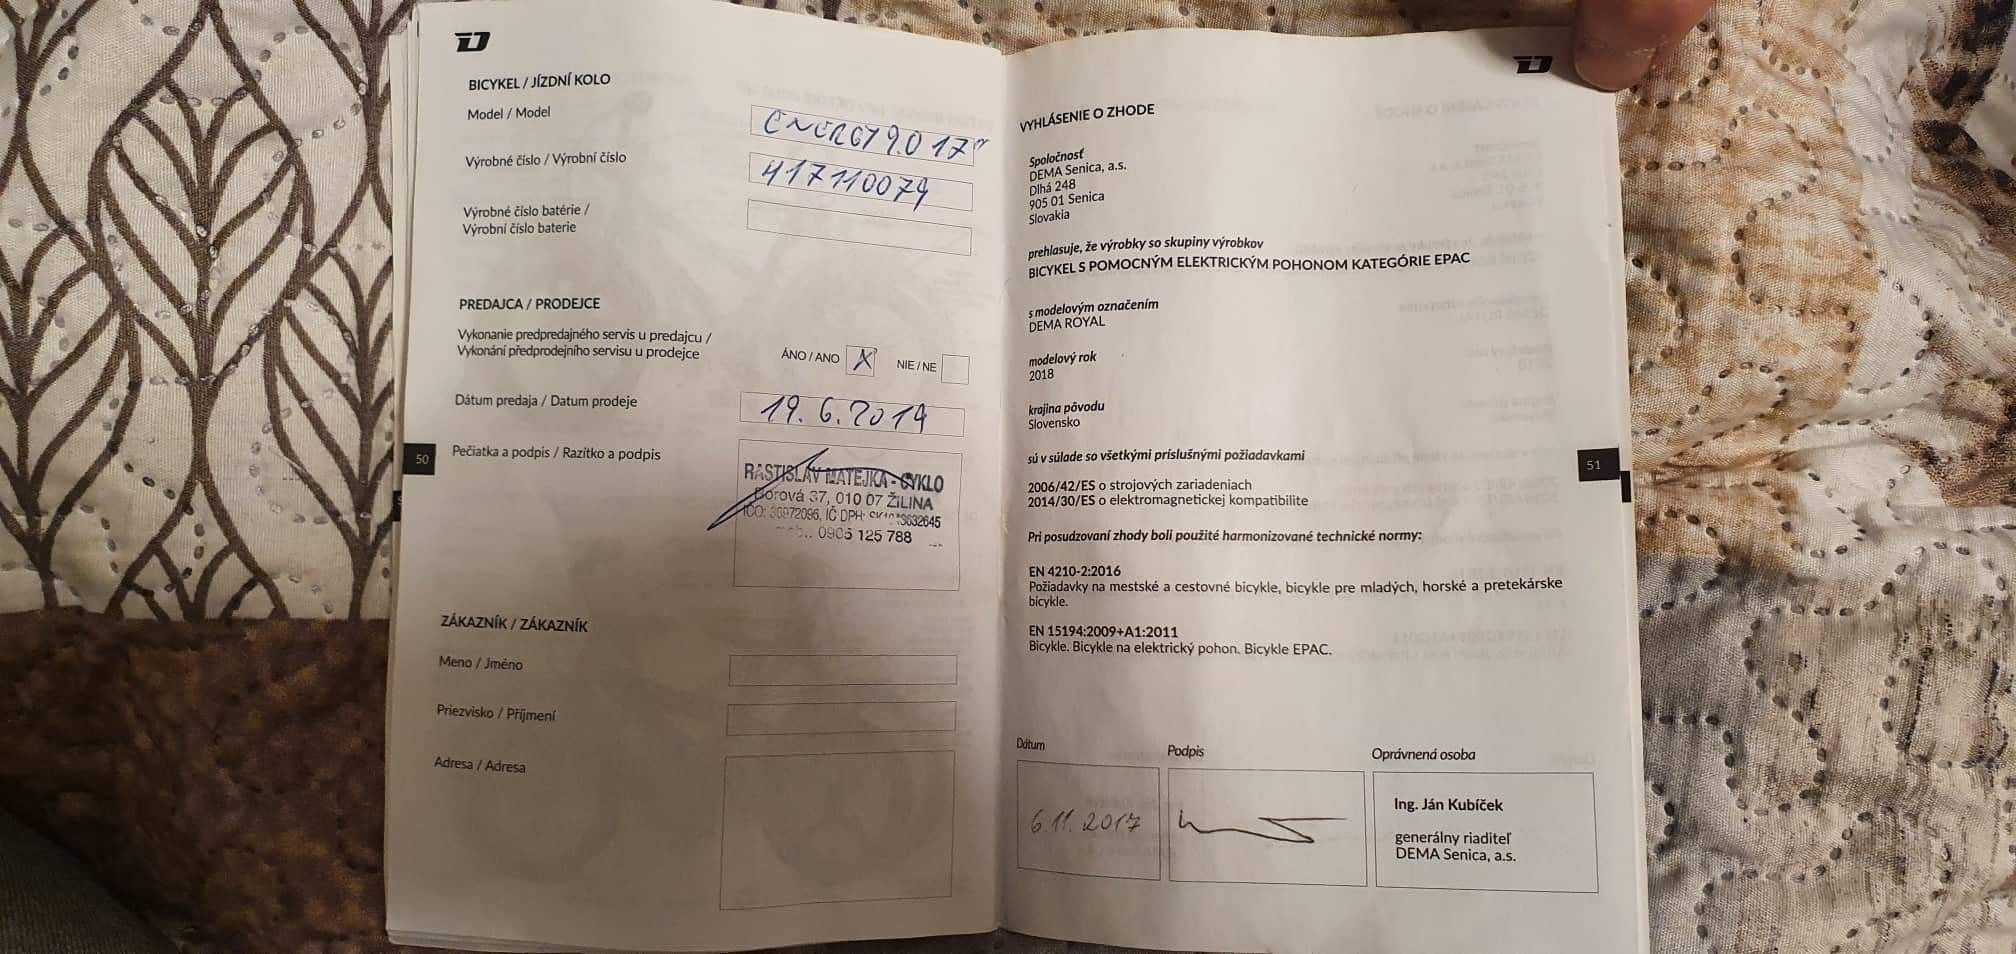 BICYKEL / JÍZDNÍ KOLO
Model / Model
ENERGY 9.0 17"
Výrobné číslo / Výrobní číslo
417110079
Výrobné číslo batérie /
Výrobní číslo baterie
PREDAJCA / PRODEJCE
Vykonanie predpredajného servis u predajcu /
Vykonání předprodejního servisu u prodejce
ÁNO / ANO X NIE / NE
Dátum predaja / Datum prodeje
19. 6. 2019
Pečiatka a podpis / Razítko a podpis
RASTISLAV MATEJKA - CYKLO
Borová 37, 010 07 ŽILINA
IČO: 30972096, IČ DPH:
0905 125 788
ZÁKAZNÍK / ZÁKAZNÍK
Meno / Jméno
Priezvisko / Příjmení
Adresa / Adresa
50
VYHLÁSENIE O ZHODE
Spoločnosť
DEMA Senica, a.s.
Dlhá 248
905 01 Senica
Slovakia
prehlasuje, že výrobky so skupiny výrobkov
BICYKEL S POMOCNÝM ELEKTRICKÝM POHONOM KATEGÓRIE EPAC
s modelovým označením
DEMA ROYAL
modelový rok
2018
krajina pôvodu
Slovensko
sú v súlade so všetkými príslušnými požiadavkami
2006/42/ES o strojových zariadeniach
2014/30/ES o elektromagnetickej kompatibilite
Pri posudzovaní zhody boli použité harmonizované technické normy:
EN 4210-2:2016
Požiadavky na mestské a cestovné bicykle, bicykle pre mladých, horské a pretekárske
bicykle.
EN 15194:2009+A1:2011
Bicykle. Bicykle na elektrický pohon. Bicykle EPAC.
Dátum
Podpis
Oprávnená osoba
6.11.2017
Ing. Ján Kubíček
generálny riaditeľ
DEMA Senica, a.s.
51